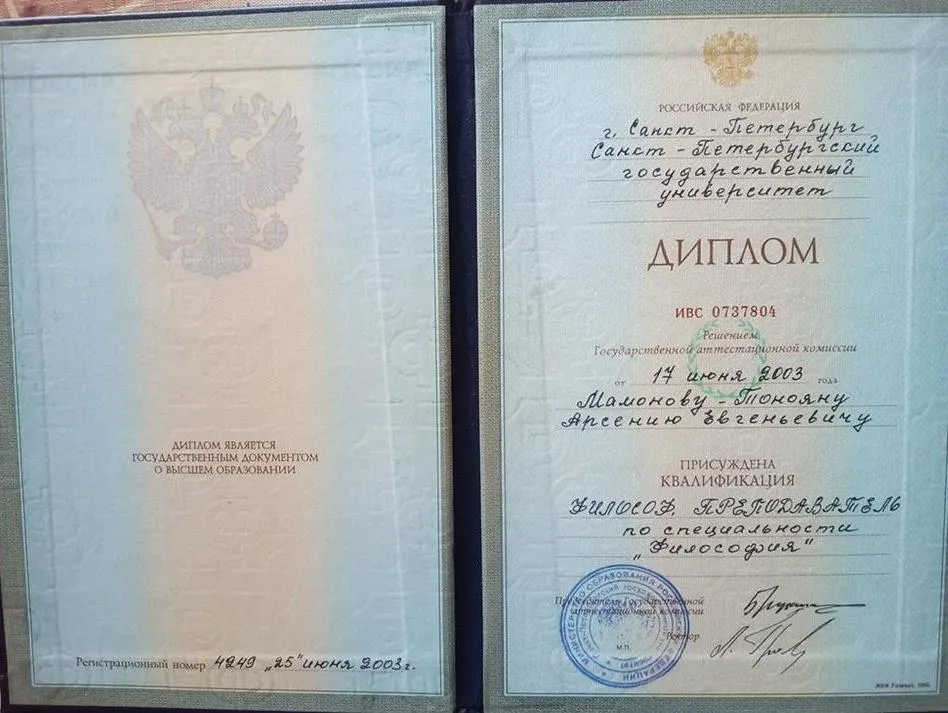 ДИПЛОМ ЯВЛЯЕТСЯ
ГОСУДАРСТВЕННЫМ ДОКУМЕНТОМ
О ВЫСШЕМ ОБРАЗОВАНИИ
Регистрационный номер 4249 „25" июня 2003г.
РОССИЙСКАЯ ФЕДЕРАЦИЯ
г. Санкт - Петербург
Санкт - Петербургский
государственный
университет
ДИПЛОМ
ИВС 0737804
Решением
Государственной аттестационной комиссии
от 17 июня 2003 года
Мамонову - Тонояну
Арсению Евгеньевичу
ПРИСУЖДЕНА
КВАЛИФИКАЦИЯ
ФИЛОСОФ. ПРЕПОДАВАТЕЛЬ
по специальности
„Философия"
Председатель Государственной
аттестационной комиссии
Ректор
М.П.
МИНИСТЕРСТВО ОБРАЗОВАНИЯ РОССИЙСКОЙ ФЕДЕРАЦИИ